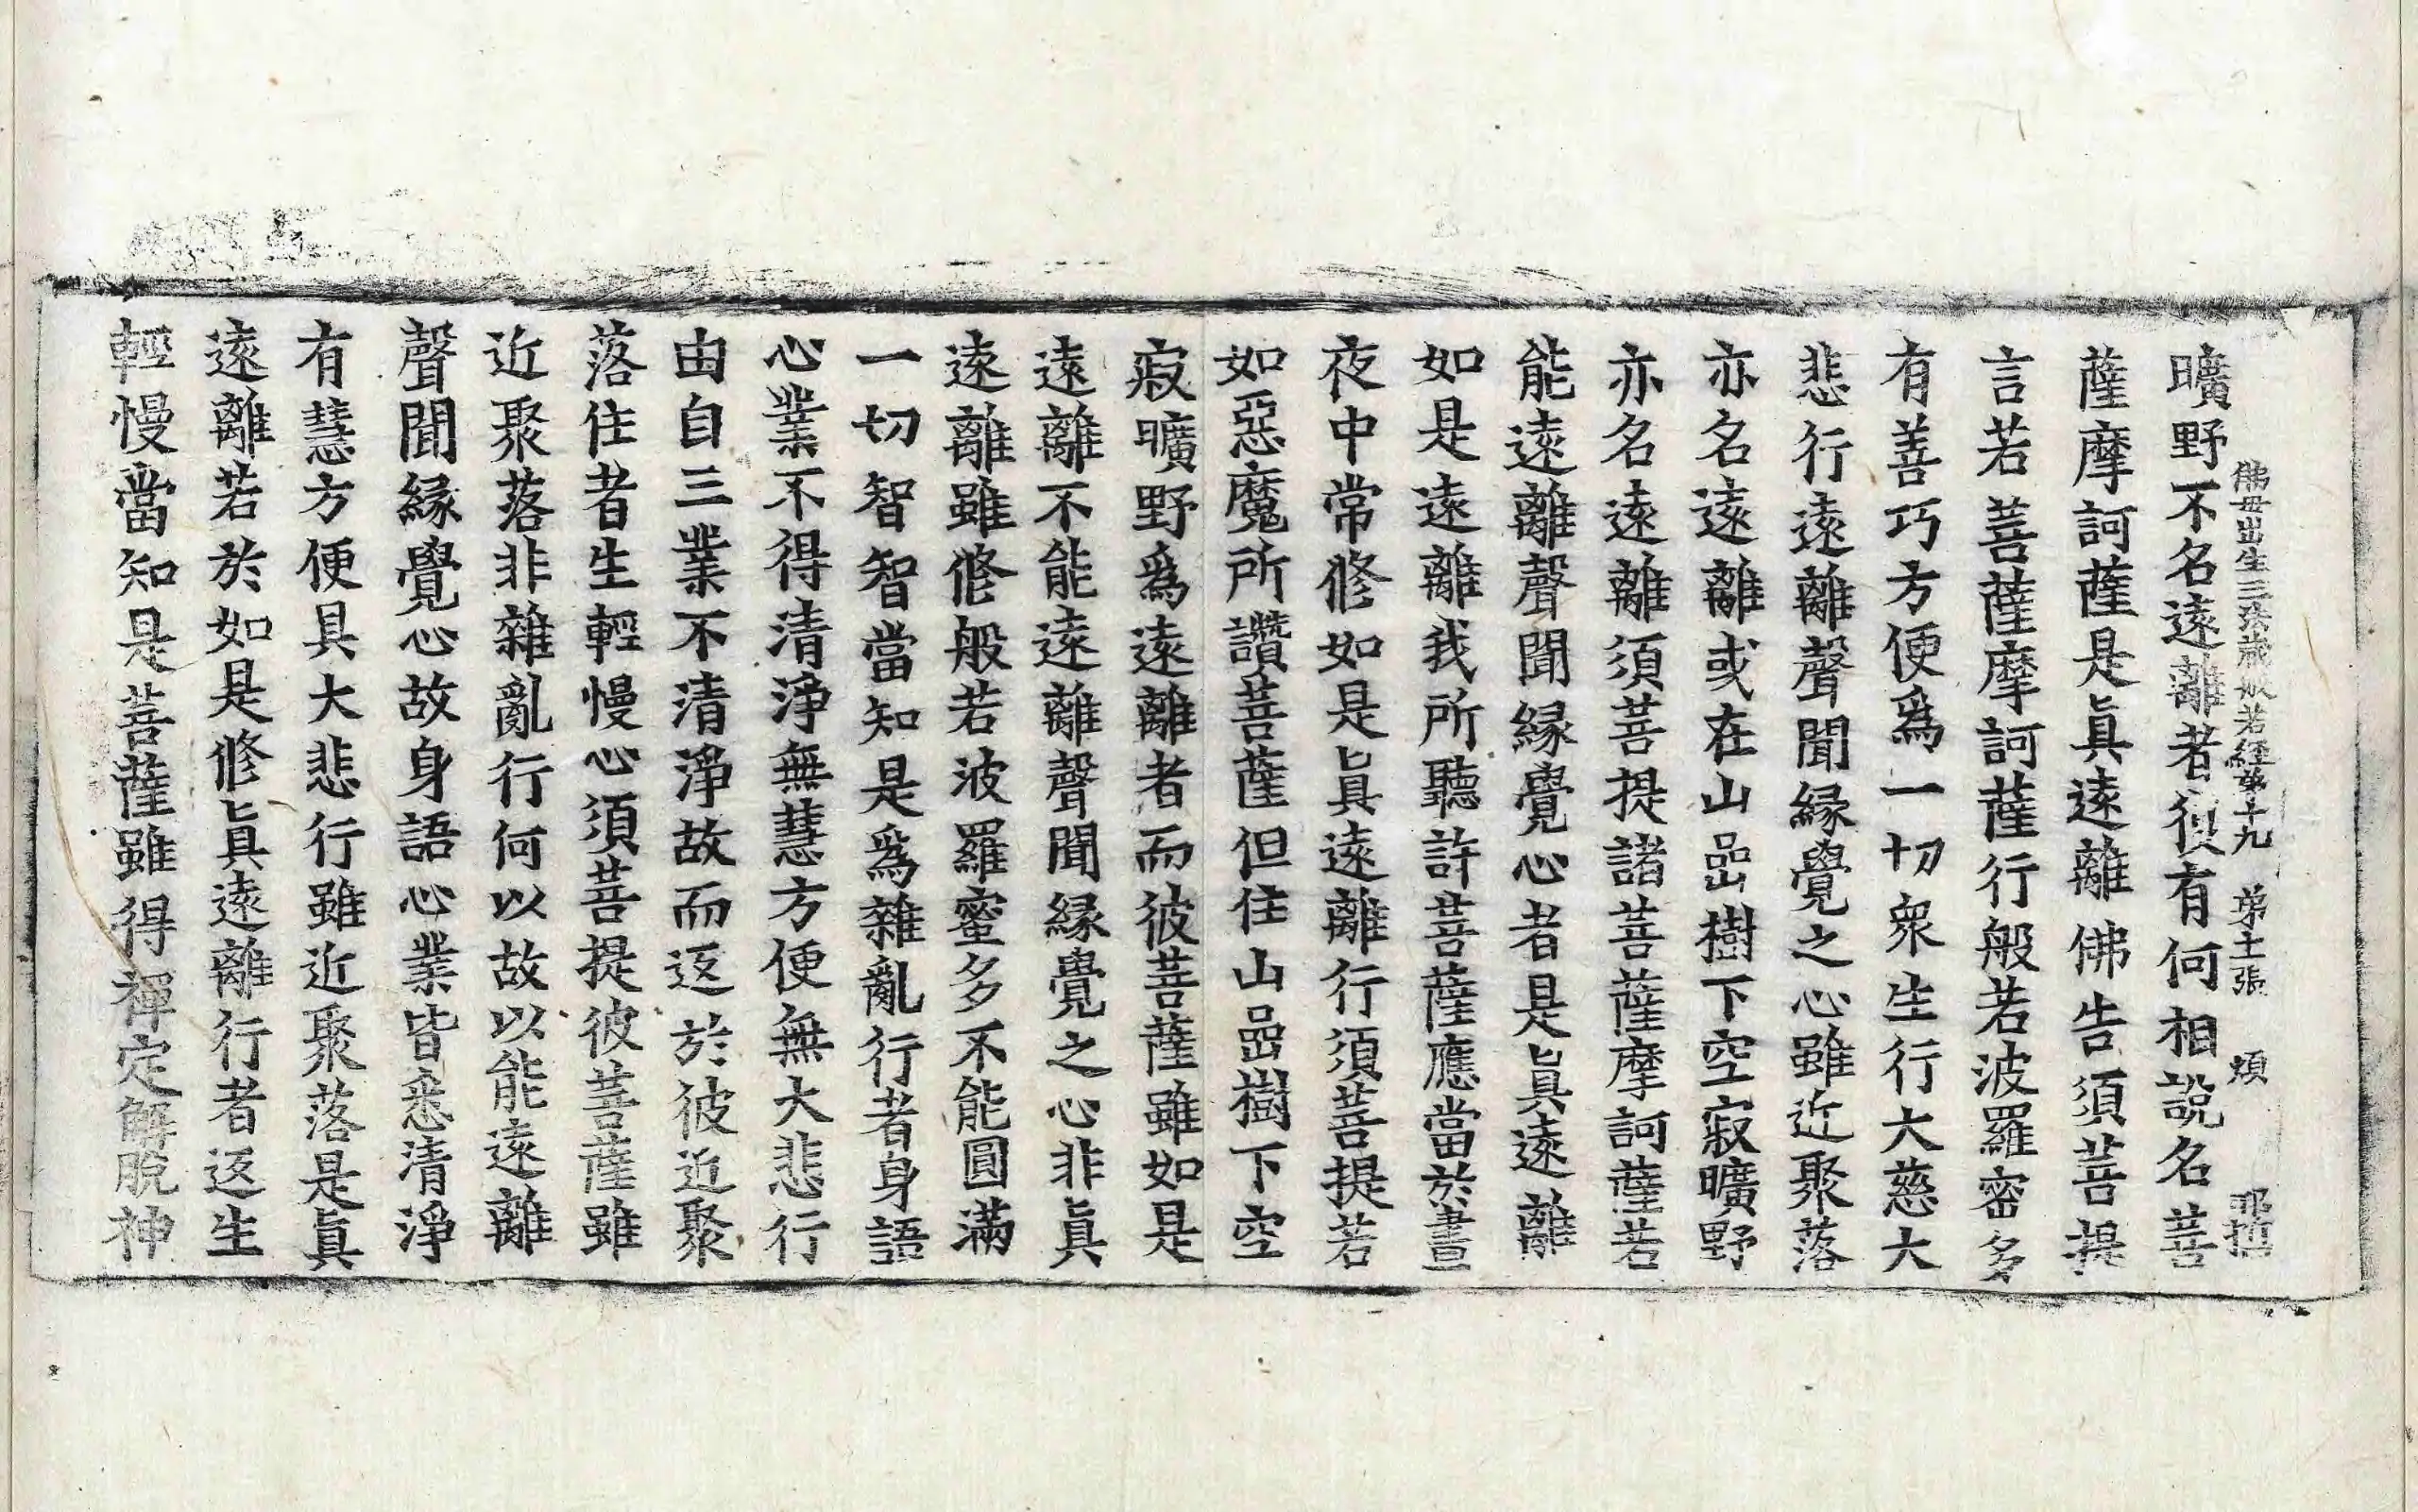 佛母出生三法藏般若經第十九 第十二張 煩
曠野不名遠離者復有何相說名菩
薩摩訶薩是眞遠離佛告須菩提
言若菩薩摩訶薩行般若波羅密多
有善巧方便爲一切衆生行大慈大
悲行遠離聲聞緣覺之心雖近聚落
亦名遠離或在山嵒樹下空寂曠野
亦名遠離須菩提諸菩薩摩訶薩若
能遠離聲聞緣覺心者是眞遠離
如是遠離我所聽許菩薩應當於晝
夜中常修如是眞遠離行須菩提若
如惡魔所讚菩薩但住山嵒樹下空
寂曠野爲遠離者而彼菩薩雖如是
遠離不能遠離聲聞緣覺之心非眞
遠離雖修般若波羅蜜多不能圓滿
一切智智當知是爲雜亂行者身語
心業不得清淨無慧方便無大悲行
由自三業不清淨故而返於彼近聚
落住者生輕慢心須菩提彼菩薩雖
近聚落非雜亂行何以故以能遠離
聲聞緣覺心故身語心業皆悉清淨
有慧方便具大悲行雖近聚落是眞
遠離若於如是修眞遠離行者返生
輕慢當知是菩薩雖得禪定解脫神